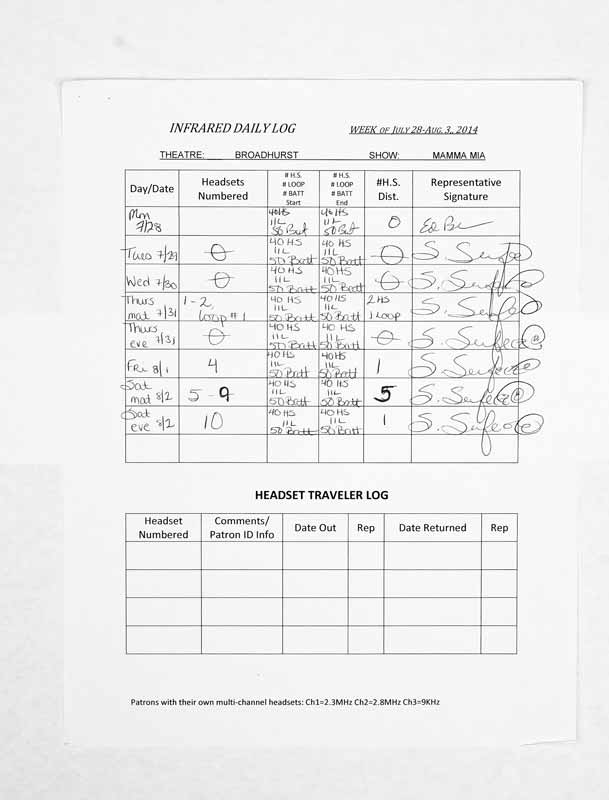 INFRARED DAILY LOG WEEK OF JULY 28-AUG. 3, 2014
THEATRE: BROADHURST SHOW: MAMMA MIA
Day/Date Headsets Numbered # H.S. # LOOP # BATT Start # H.S. # LOOP # BATT End #H.S. Dist. Representative Signature
Mon 7/28 40 HS 11 L 50 Batt 40 HS 11 L 50 Batt 0
Tues 7/29 0 40 HS 11 L 50 Batt 40 HS 11 L 50 Batt 0
Wed 7/30 0 40 HS 11 L 50 Batt 40 HS 11 L 50 Batt 0
Thurs mat 7/31 1-2, loop #1 40 HS 11 L 50 Batt 40 HS 11 L 50 Batt 2 HS 1 Loop
Thurs eve 7/31 0 40 HS 11 L 50 Batt 40 HS 11 L 50 Batt 0
Fri 8/1 4 40 HS 11 L 50 Batt 40 HS 11 L 50 Batt 1
Sat mat 8/2 5-9 40 HS 11 L 50 Batt 40 HS 11 L 50 Batt 5
Sat eve 8/2 10 40 HS 11 L 50 Batt 40 HS 11 L 50 Batt 1
HEADSET TRAVELER LOG
Headset Numbered Comments/ Patron ID Info Date Out Rep Date Returned Rep
Patrons with their own multi-channel headsets: Ch1=2.3MHz Ch2=2.8MHz Ch3=9KHz